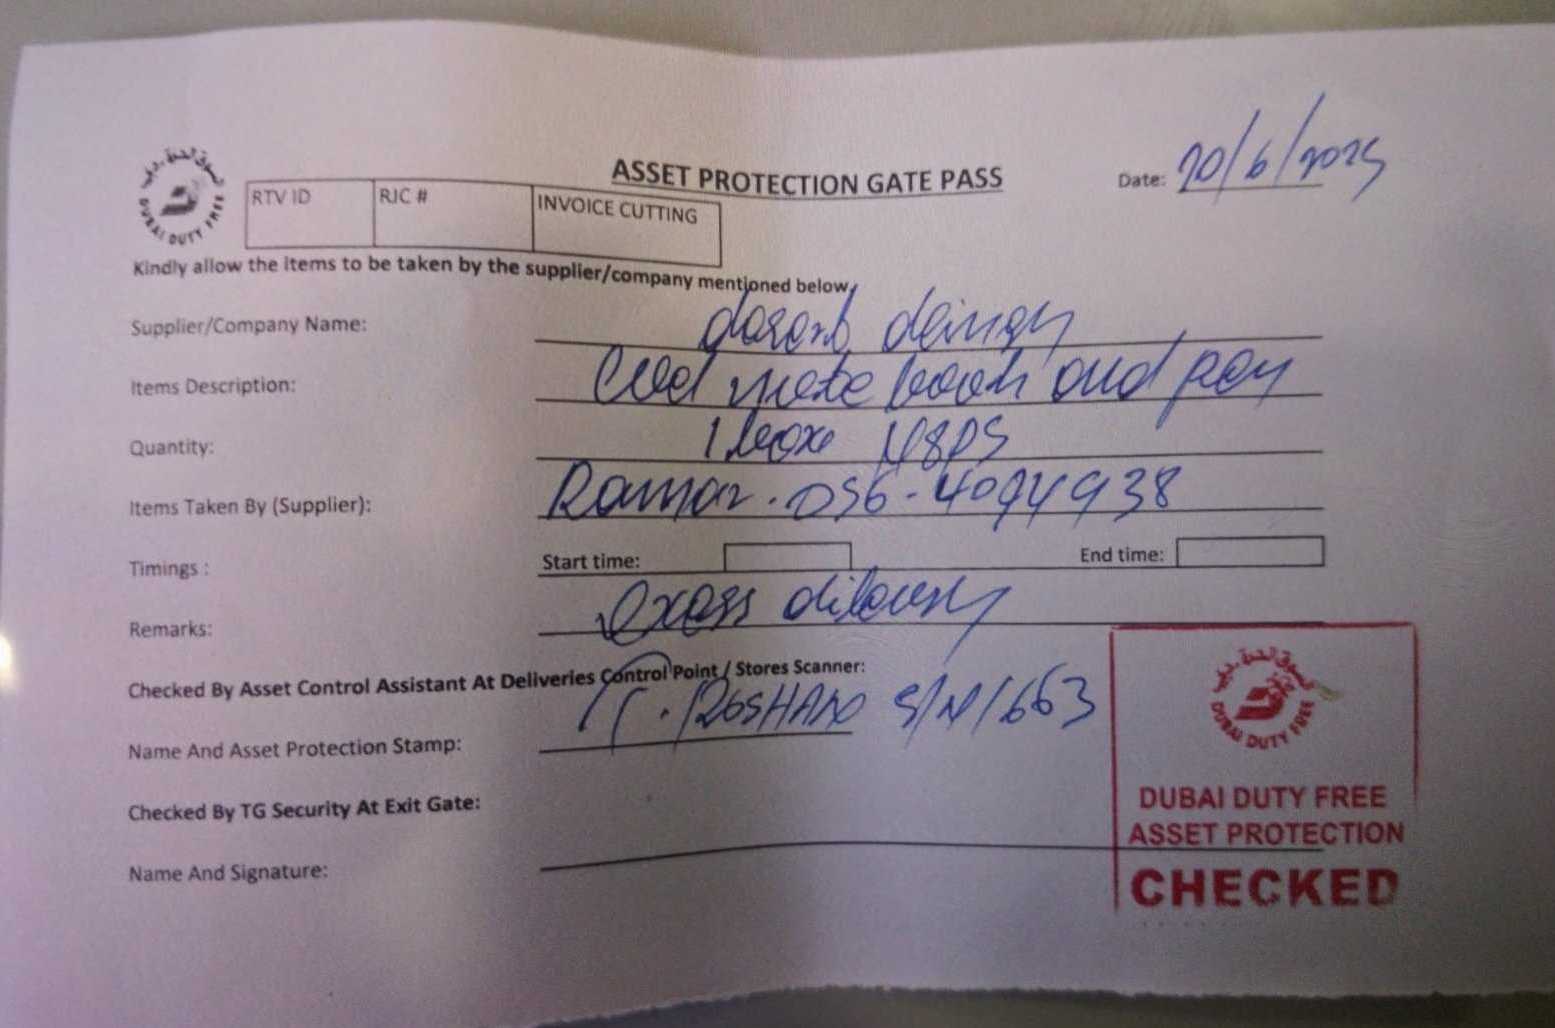 ASSET PROTECTION GATE PASS
Date: 20/6/2025
DUBAI DUTY FREE
RTV ID
RJC #
INVOICE CUTTING
Kindly allow the items to be taken by the supplier/company mentioned below.
Supplier/Company Name:
Items Description: note book and pen
Quantity: 1 box
Items Taken By (Supplier): 056-4094938
Timings : Start time: End time:
Remarks: exass
Checked By Asset Control Assistant At Deliveries Control Point / Stores Scanner:
Name And Asset Protection Stamp: S/N/1663
Checked By TG Security At Exit Gate:
Name And Signature:
DUBAI DUTY FREE
DUBAI DUTY FREE
ASSET PROTECTION
CHECKED